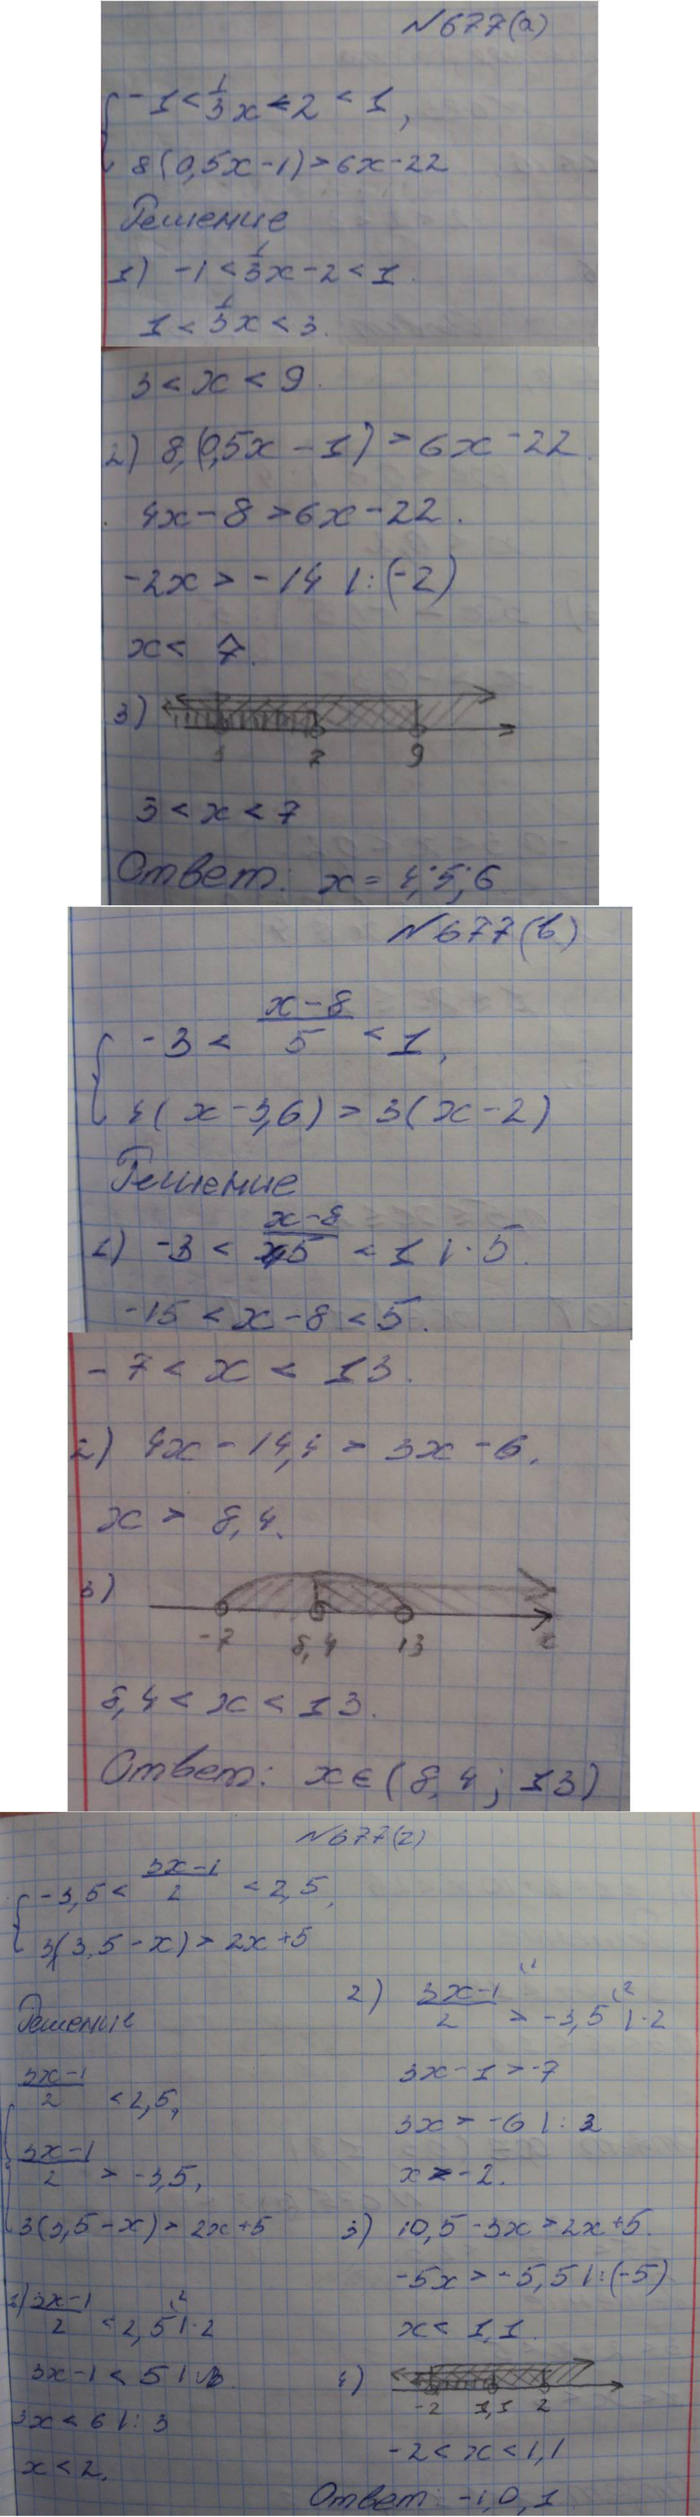 №677(а)
-1 < 1/3 x - 2 < 1,
8(0,5x-1) > 6x-22
Решение
1) -1 < 1/3 x - 2 < 1.
1 < 1/3 x < 3.
3 < x < 9.
2) 8(0,5x-1) > 6x-22.
4x-8 > 6x-22.
-2x > -14 |:(-2)
x < 7.
3)
3 7 9
3 < x < 7
Ответ: x = 4;5;6
№677(в)
-3 < (x-8)/5 < 1,
4(x-3,6) > 3(x-2)
Решение
1) -3 < (x-8)/5 < 1 |·5.
-15 < x-8 < 5.
-7 < x < 13.
2) 4x-14,4 > 3x-6.
x > 8,4.
3)
-7 8,4 13 x
8,4 < x < 13.
Ответ: x∈(8,4; 13)
№677(г)
-3,5 < (3x-1)/2 < 2,5,
3(3,5-x) > 2x+5
Решение
(3x-1)/2 < 2,5,
(3x-1)/2 > -3,5,
3(3,5-x) > 2x+5
1) (3x-1)/2 < 2,5 |·2
3x-1 < 5
3x < 6 |:3
x < 2.
2) (3x-1)/2 > -3,5 |·2
3x-1 > -7
3x > -6 |:3
x > -2.
3) 10,5-3x > 2x+5.
-5x > -5,5 |:(-5)
x < 1,1.
4)
-2 1,1 2
-2 < x < 1,1
Ответ: -1,0,1